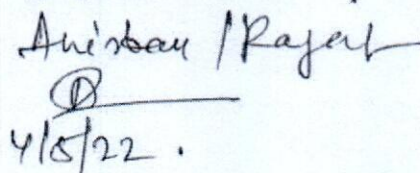 Anirban / Rajesh
4/5/22.